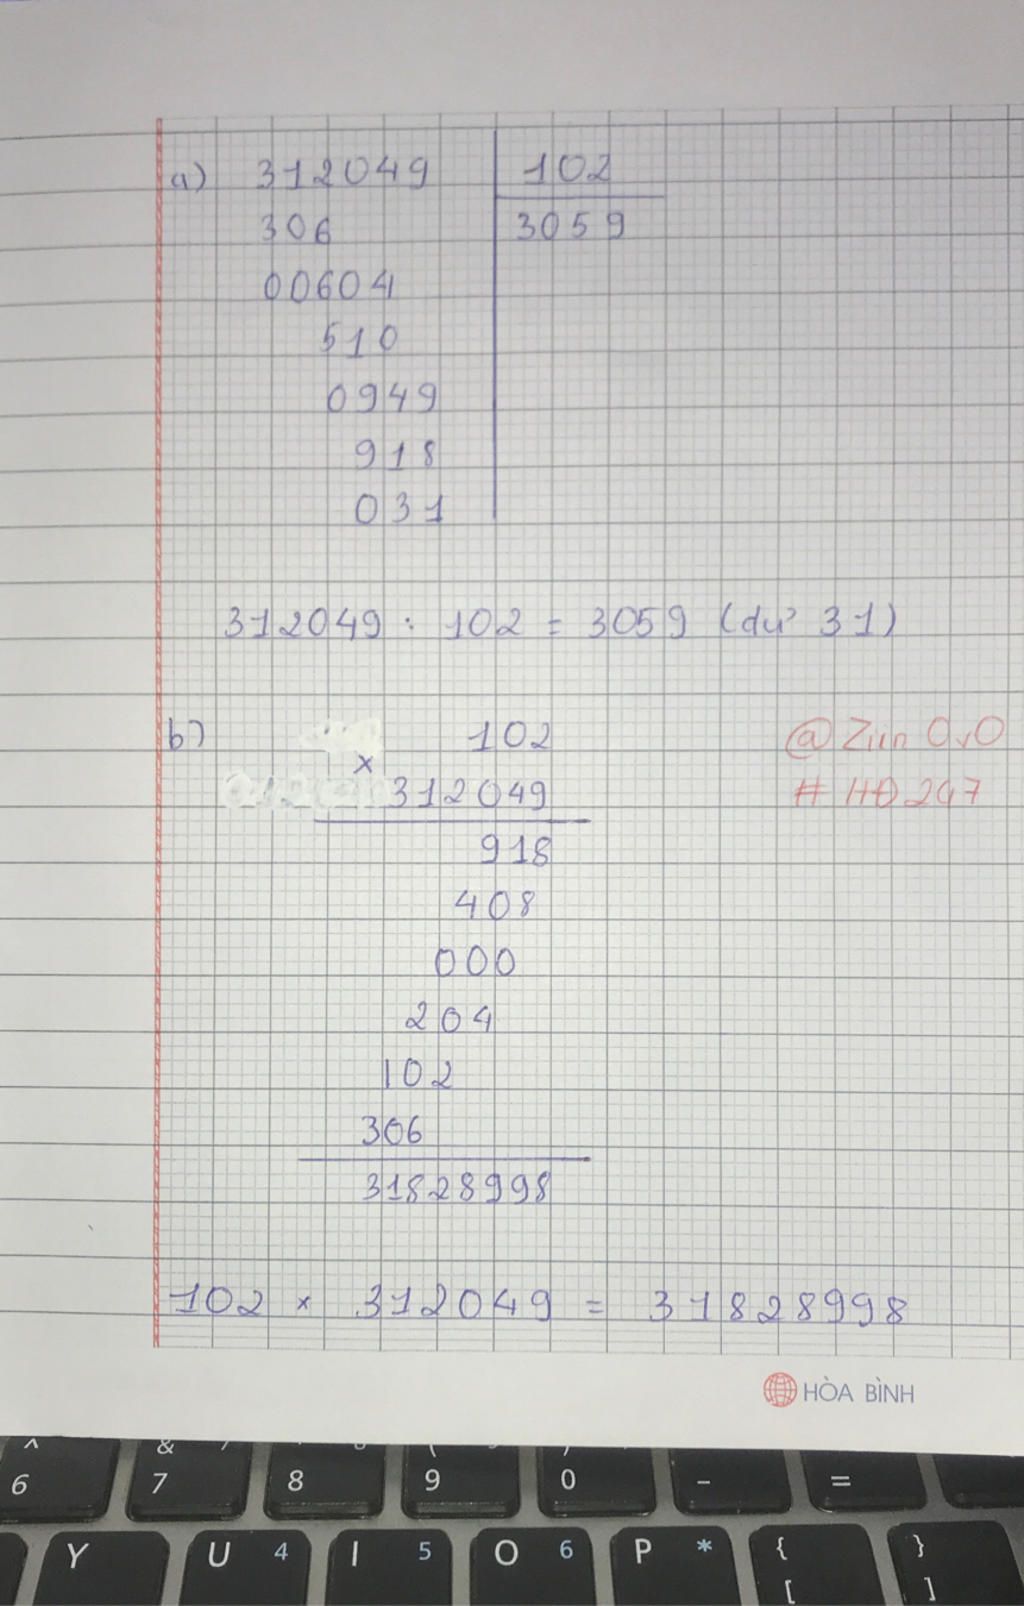 a) 312049 102
306 3059
00604
510
0949
918
031
312049 : 102 = 3059 (dư 31)
b) 102
×
312049
918
408
000
204
102
306
31828998
@Ziin OvO
# HĐ247
102 × 312049 = 31828998
HÒA BÌNH
^ & ( )
6 7 8 9 0 - =
Y U 4 I 5 O 6 P * { }
[ ]